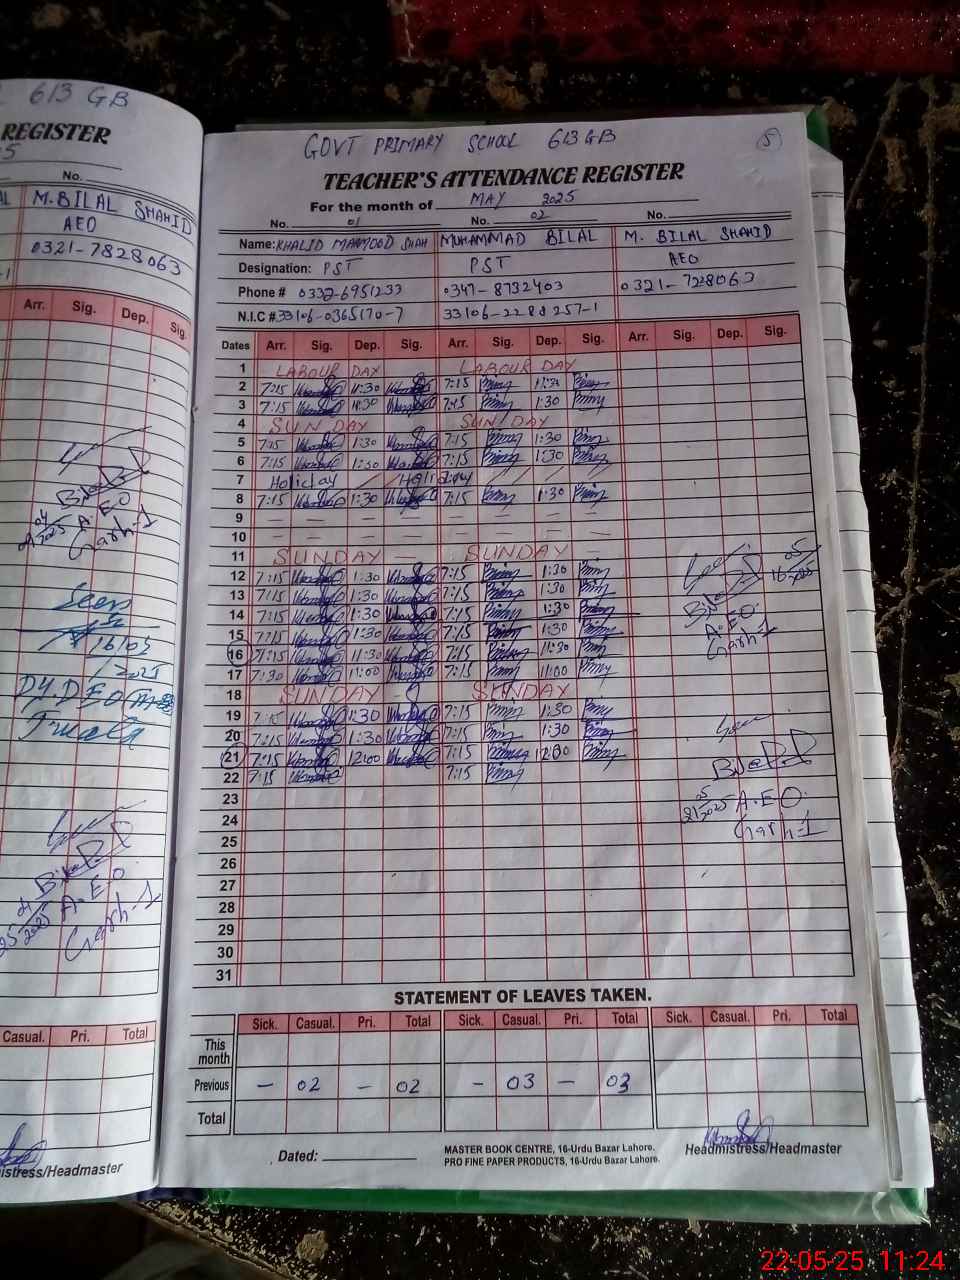 613 GB
REGISTER
No.
M. BILAL SHAHID
AEO
0321-7828063
Arr. Sig. Dep. Sig.
A.E.O
Garh-1
Seen
16/05
2025
DY.DEO
A.E.O
Garh-1
Casual. Pri. Total
Headmistress/Headmaster
GOVT PRIMARY SCHOOL 613 GB
5
TEACHER'S ATTENDANCE REGISTER
For the month of MAY 2025
No. 01 No. 02 No.
Name: KHALID MAHMOOD SHAH MUHAMMAD BILAL M. BILAL SHAHID
Designation: PST PST AEO
Phone # 0332-6951233 0347-8732403 0321-7828063
N.I.C # 33106-0365170-7 33106-2288257-1
Dates Arr. Sig. Dep. Sig. Arr. Sig. Dep. Sig. Arr. Sig. Dep. Sig.
1 LABOUR DAY LABOUR DAY
2 7:15 11:30 7:15 11:30
3 7:15 1:30 7:15 1:30
4 SUNDAY SUNDAY
5 7:15 1:30 7:15 1:30
6 7:15 1:30 7:15 1:30
7 Holiday Holiday
8 7:15 1:30 7:15 1:30
9 — — — — — — — —
10 — — — — — — — —
11 SUNDAY — SUNDAY
12 7:15 1:30 7:15 1:30
13 7:15 1:30 7:15 1:30
14 7:15 1:30 7:15 1:30
15 7:15 1:30 7:15 1:30
16 7:15 11:30 7:15 11:30
17 7:30 11:00 7:15 11:00
18 SUNDAY SUNDAY
19 7:15 1:30 7:15 1:30
20 7:15 1:30 7:15 1:30
21 7:15 12:00 7:15 12:00
22 7:15 7:15
23
24
25
26
27
28
29
30
31
A.E.O.
Garh-1
A.E.O.
Garh-1
STATEMENT OF LEAVES TAKEN.
Sick. Casual. Pri. Total Sick. Casual. Pri. Total Sick. Casual. Pri. Total
This month
Previous — 02 — 02 — 03 — 03
Total
Dated:
MASTER BOOK CENTRE, 16-Urdu Bazar Lahore.
PRO FINE PAPER PRODUCTS, 16-Urdu Bazar Lahore.
Headmistress/Headmaster
22-05-25 11:24